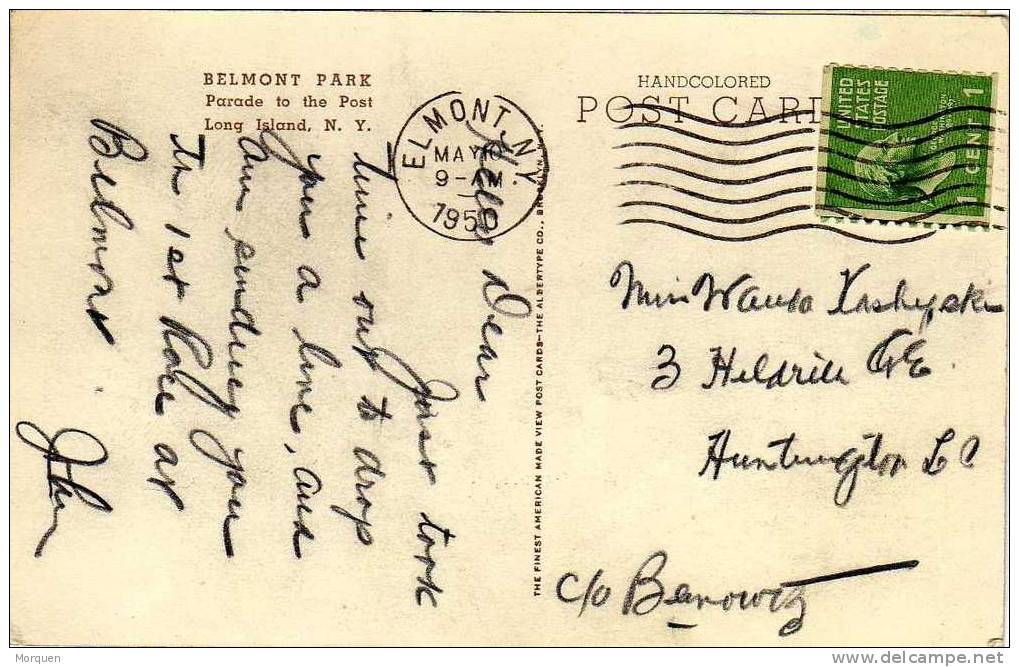 BELMONT PARK
Parade to the Post
Long Island, N. Y.
ELMONT, N.Y.
MAY 10
9-AM
1950
HANDCOLORED
POST CARD
UNITED
STATES
POSTAGE
1 CENT 1
Hello Dear
Just took
time out to drop
you a line, and
am sending you
the 1st Race at
Belmont.
John
THE FINEST AMERICAN MADE VIEW POST CARDS—THE ALBERTYPE CO., BROOKLYN, N.Y.
Miss Wanda
3
Huntington L I
c/o Benowitz
Morquen
delcampe.net